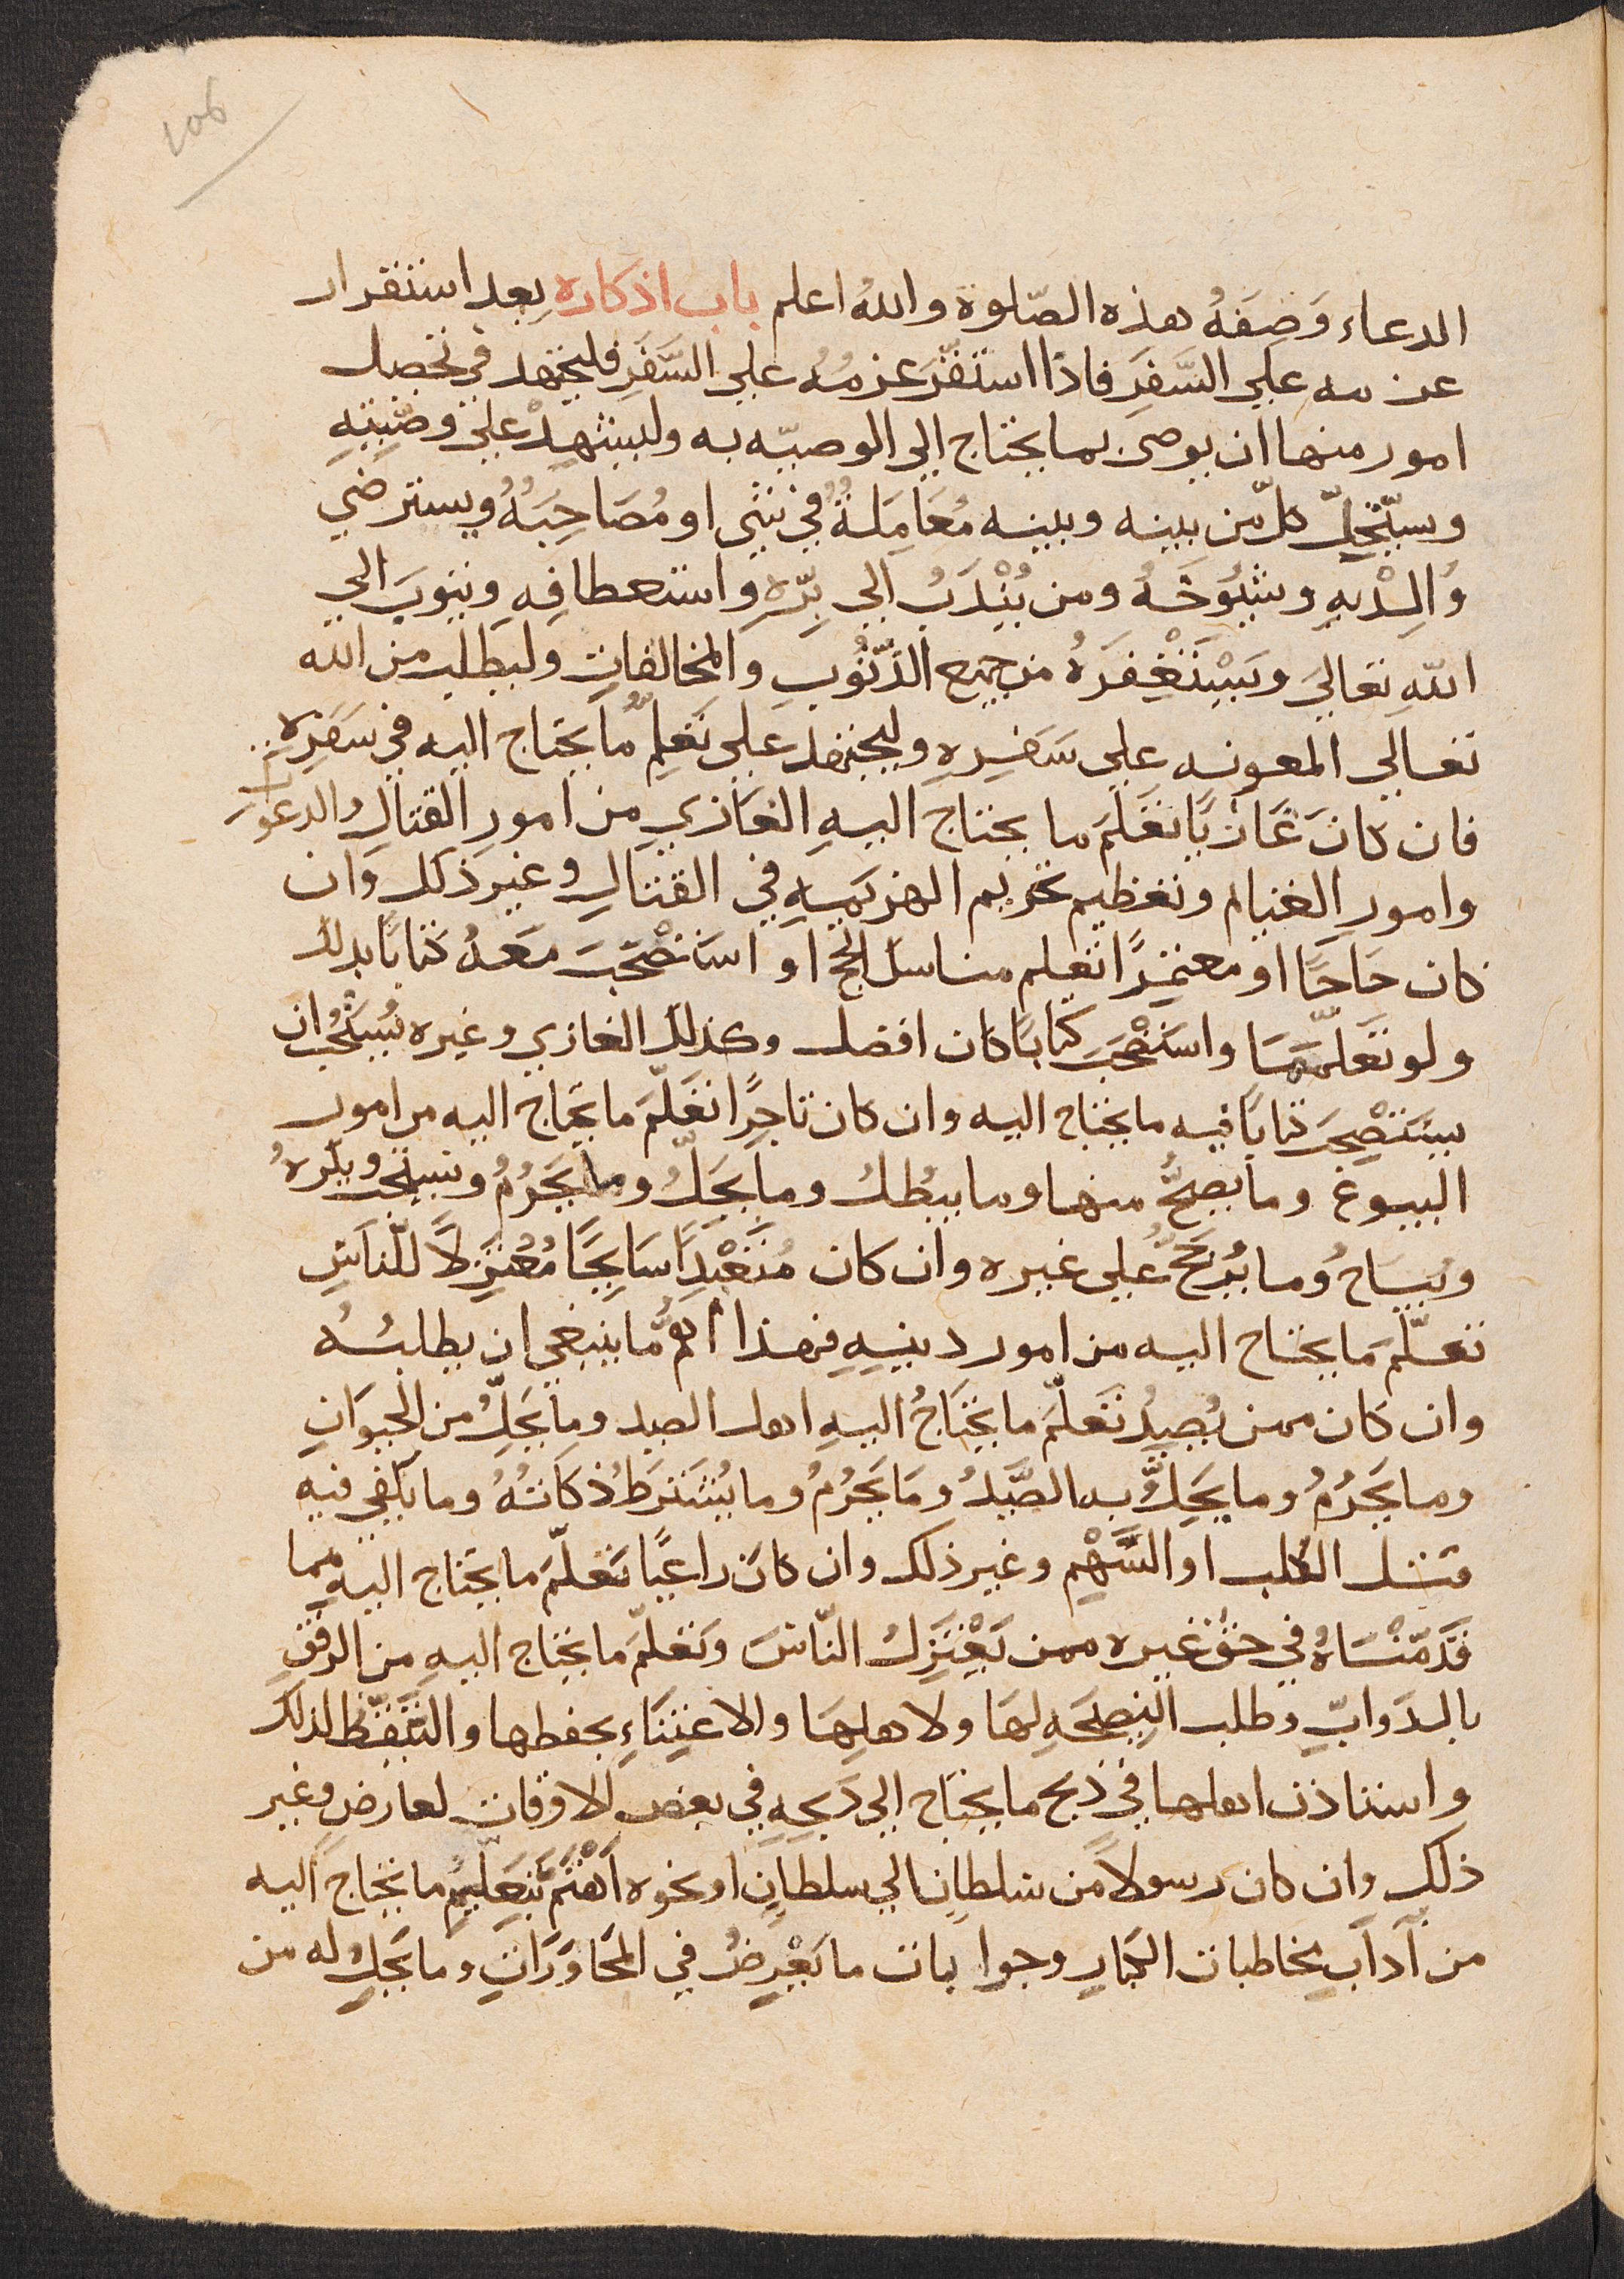 106
الدعاء وَصِفَةُ هذه الصّلوة واللهُ اعلم باب اذكاره بعد استقرار
عزمه علي السَّفَرِ فاذا استقَّرَ عزمُه علي السَّفَرِ فليجتهد في تحصيل
امور منها ان يوصي بما يحتاج الي الوصيّه به وليشهِدْ علي وصّيتِهِ
وسيّتحِلّ كلّ من بينه وبينه مُعَامَلةٌ في شي او مُصَاحَبَهُ ويسترضي
وَالِدْيهِ وشيُوخَهُ ومن يُنْدَبُ الي بِرّهِ واستعطافِهِ ويتوبَ الي
اللهِ تعَالي وَيَسْتَغْفِرَهُ من جميع الذّنُوبِ والمخالفاتِ وليطلب من الله
تعالي المعونه علي سَفرِهِ وليجتهد علي تعَلم ما يحتاج اليه في سَفرِه
فان كانَ غَازيًا تعَلمَ ما يحتاج اليهِ الغَازي من امور القتالِ والدعوَات
وامورِ الغنايم وتعظيم تحريم الهزيمهِ في القتالِ وغير ذلك وَان
كان حَاجًّا او معتمِرًا تعلم مناسك الحج او استَصْحَبَ معَهُ كتابًا بدلك
ولو تعَلمّهَا واسْتَصْحَبَ كتابًا كان افضل وكذلك الغازي وغيره يُستحُب ان
يستَصْحِبَ كتابًا فيه ما يحتاج اليه وان كان تاجِرًا تعَلّمَ ما يحتاج اليه من امور
البيوع وما يصِحُّ منها وما يبطُلُ وما يَحلُّ وما يَحرُمُ ويستحب ويكرهُ
ويُبَاحُ وما يُرجَّحُ علي غيره وان كان مُتَعْبِدًا سَايِحًا مُعْتزِلاً للّناسِ
تعَلّمَ ما يحتاج اليه من امور دينِهِ فهذا اهمُّ ما ينبغي ان يطلبُهُ
وان كان ممن يُصِيدُ تعَلّمَ ما يحتَاجُ اليهِ اهل الصيد وما يَحلُّ من الحيوَانِ
وما يَحرُمُ وما يَحِلُّ به الصَّيدُ ومَا يَحرُمُ وما يُشتَرَطُ ذكَاتُهُ وما يكفي فيه
قتل الكلب او السَّهْمِ وغير ذلك وان كانَ راعيًا تعَلّمَ ما يحتاج اليه مما
قدّمْنَاهُ في حق غيره ممن يَعْتزِلُ النّاسَ وتعَلّمَ ما يحتاج اليهِ من الرفقِ
بالدَوابّ وطلب النِصيحَهِ لهَا ولاهلِهَا والاعتِنَاءِ بحفظها والتيَقّظ لذلك
واستاذن اهلها في ذبح ما يحتاج الي ذبحِهِ في بعض الاوقات لعارض وغير
ذلك وان كان رسولاً من سلطان الي سلطان او نحوه اهْتَمَ بتعلّمِ ما يحتاج اليه
من آدابِ مخاطبات الكبارِ وجوابات ما يَعْرِضُ في المحَاوَرَاتِ وما يَحِلُّ له من